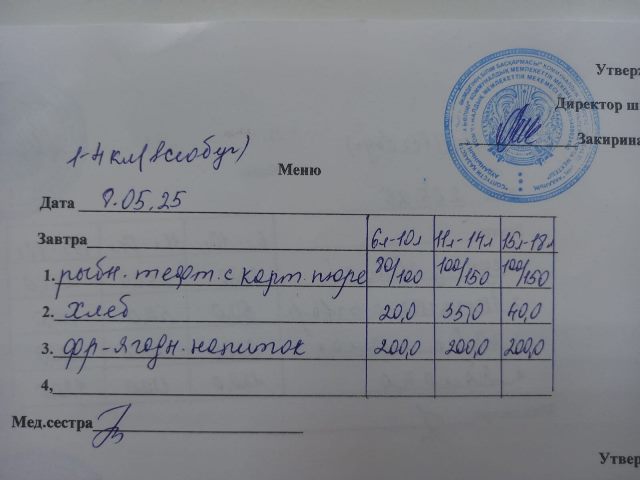 Утвер
Директор ш
Закирина
1-4 кл (всеобуч)
Меню
Дата 8.05.25
Завтра 6л-10л 11л-14л 15л-18л
1. рыбн. тефт. с карт. пюре 80/100 100/150 100/150
2. хлеб 20,0 35,0 40,0
3. фр-ягодн. напиток 200,0 200,0 200,0
4,
Мед.сестра
Утвер